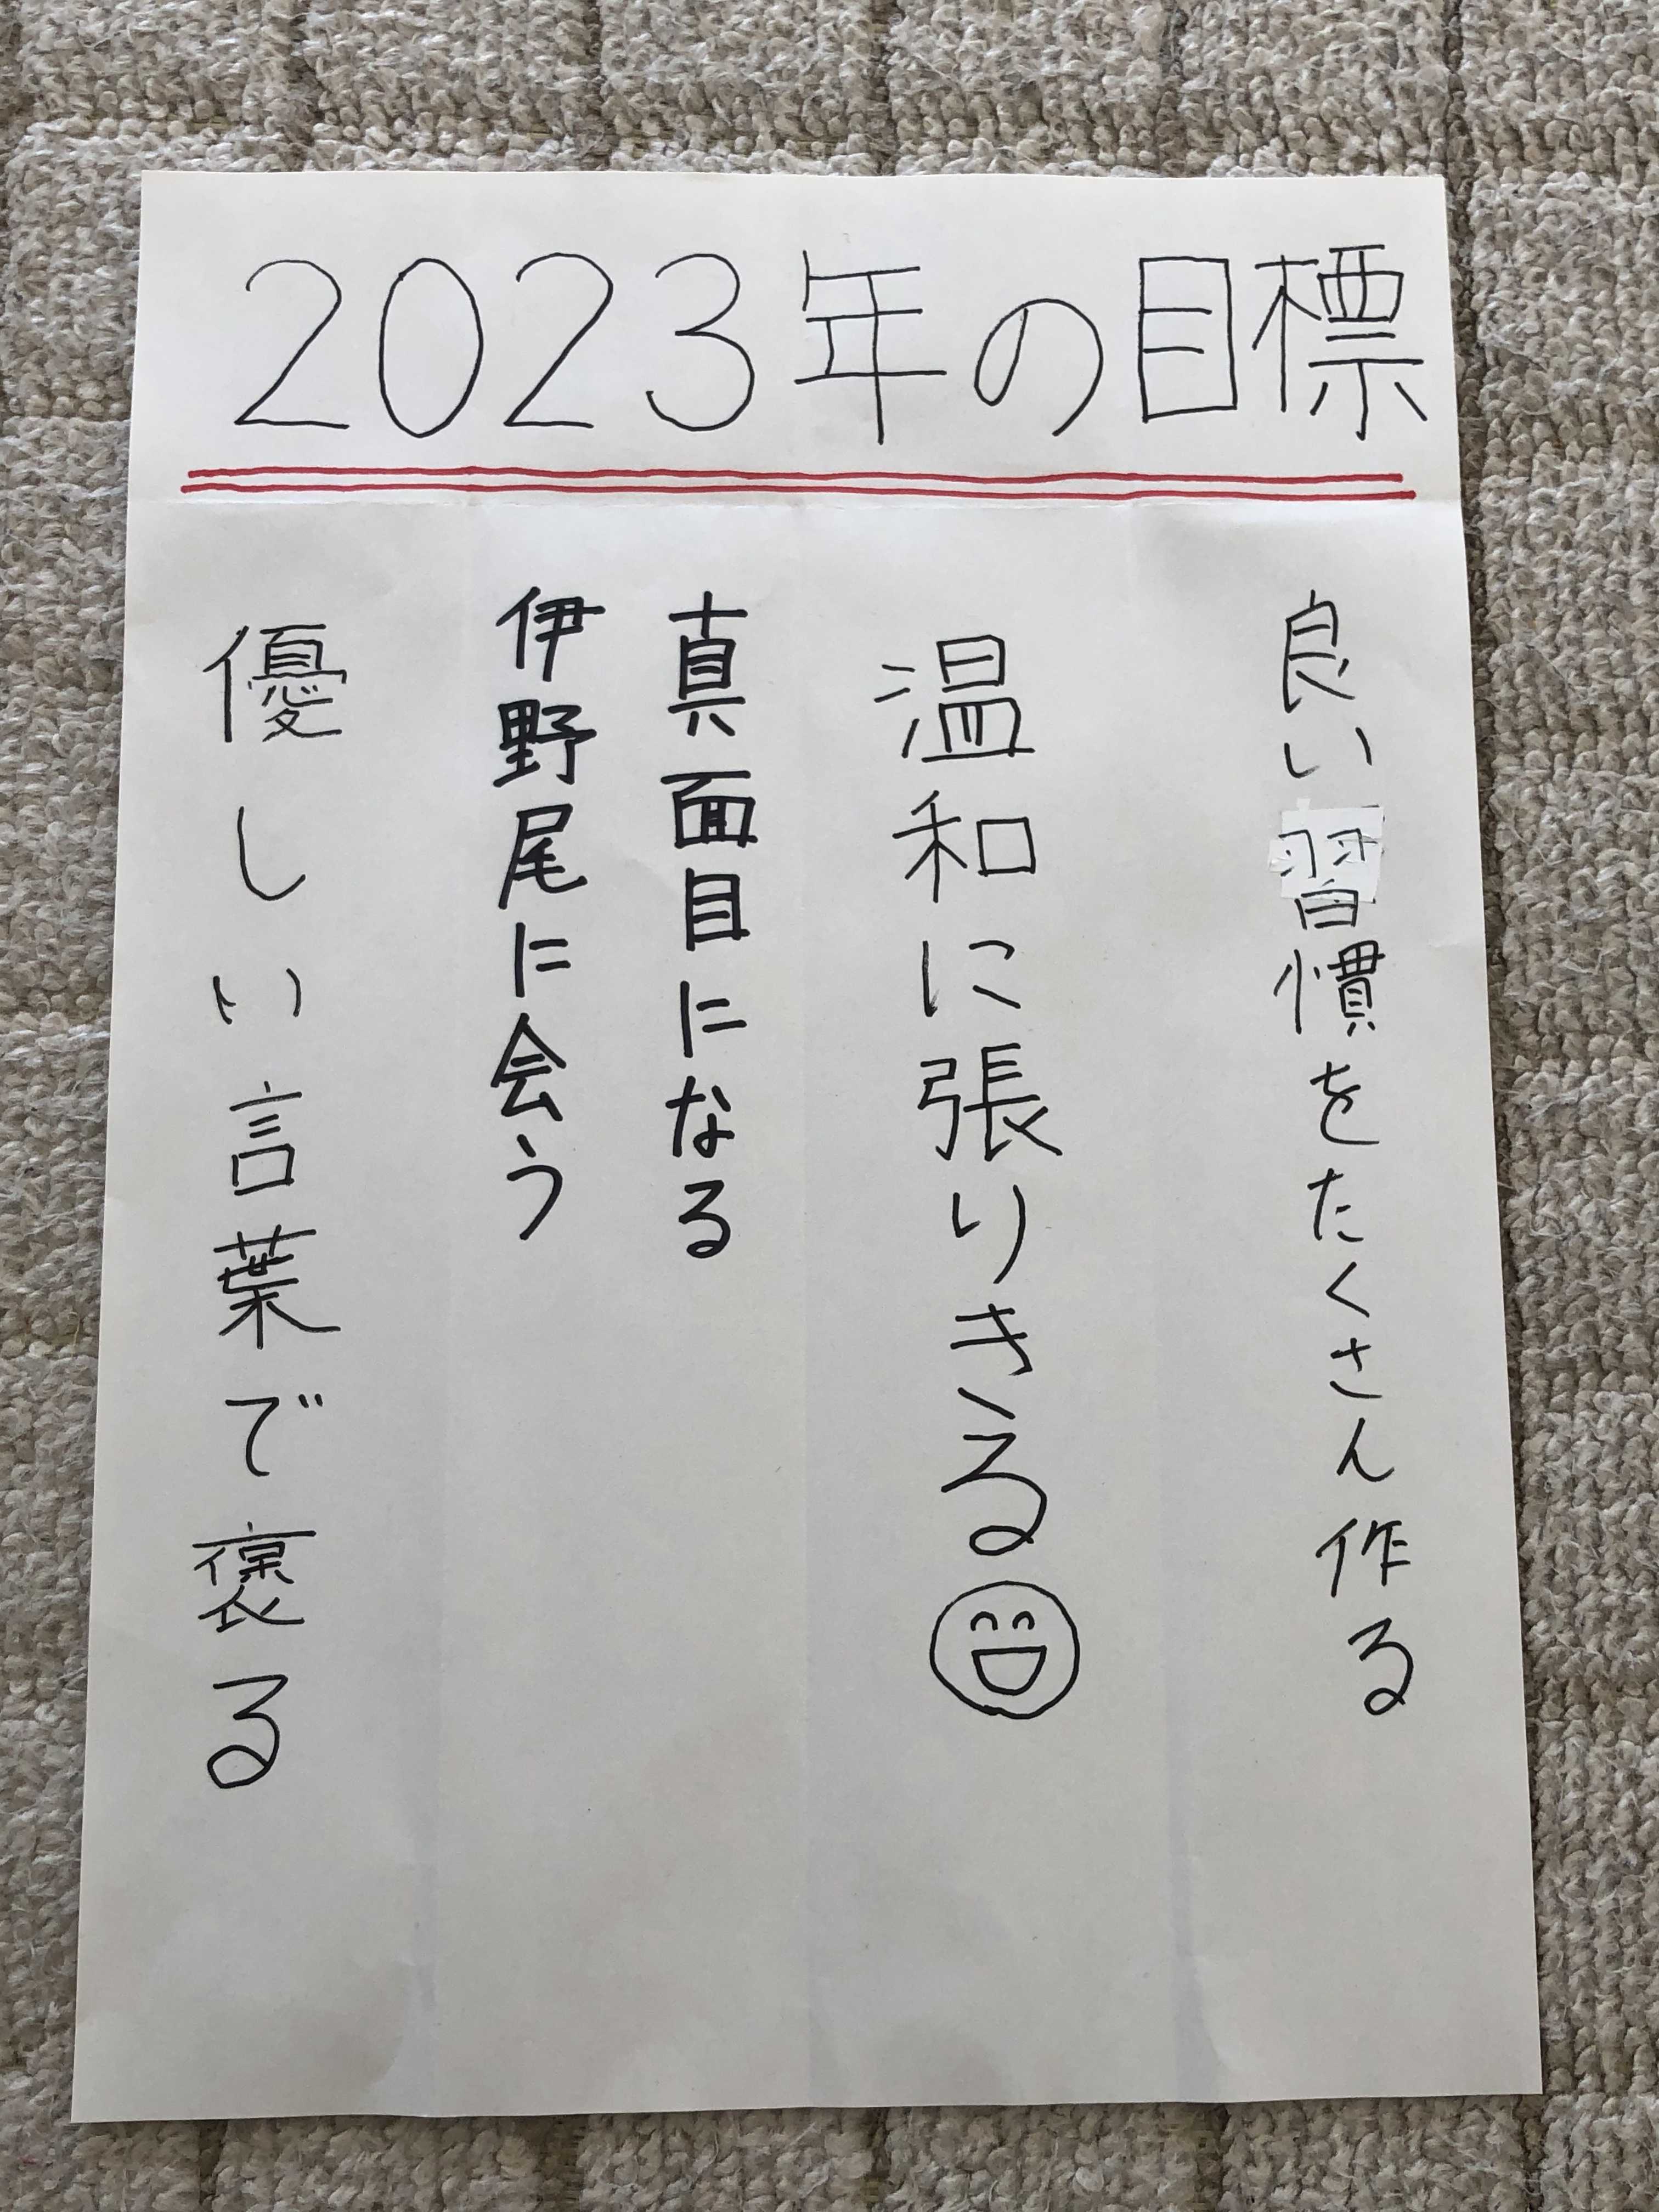 2023年の目標
良い習慣をたくさん作る
温和に張りきる
真面目になる
伊野尾に会う
優しい言葉で褒る